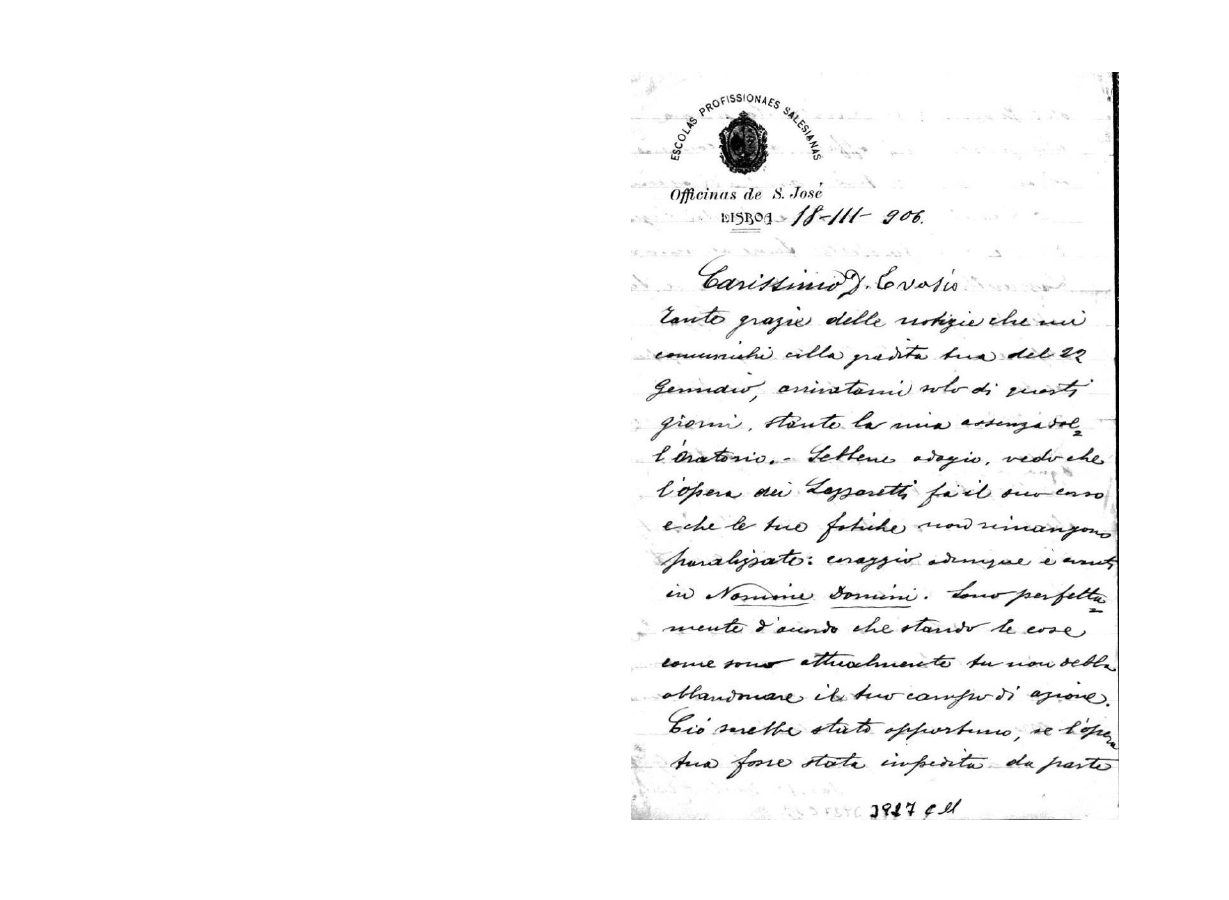 ESCOLAS PROFISSIONAES SALESIANAS
Officinas de S. José
LISBOA 18-III-906.
Carissimo D. Evasio
Tante grazie delle notizie che mi
comunichi colla gradita tua del 22
Gennaio, arrivatami solo di questi
giorni, stante la mia assenza dal=
l'Oratorio.- Sebbene adagio, vedo che
l'opera dei Lazzaretti fa il suo corso
e che le tue fatiche non rimangono
paralizzate: coraggio adunque e avanti
in Nomine Domini. Sono perfetta=
mente d'acordo che stando le cose
come sono attualmente tu non debba
abbandonare il tuo campo di azione.
Ció sarebbe stato opportuno, se l'opera
tua fosse stata impedita da parte